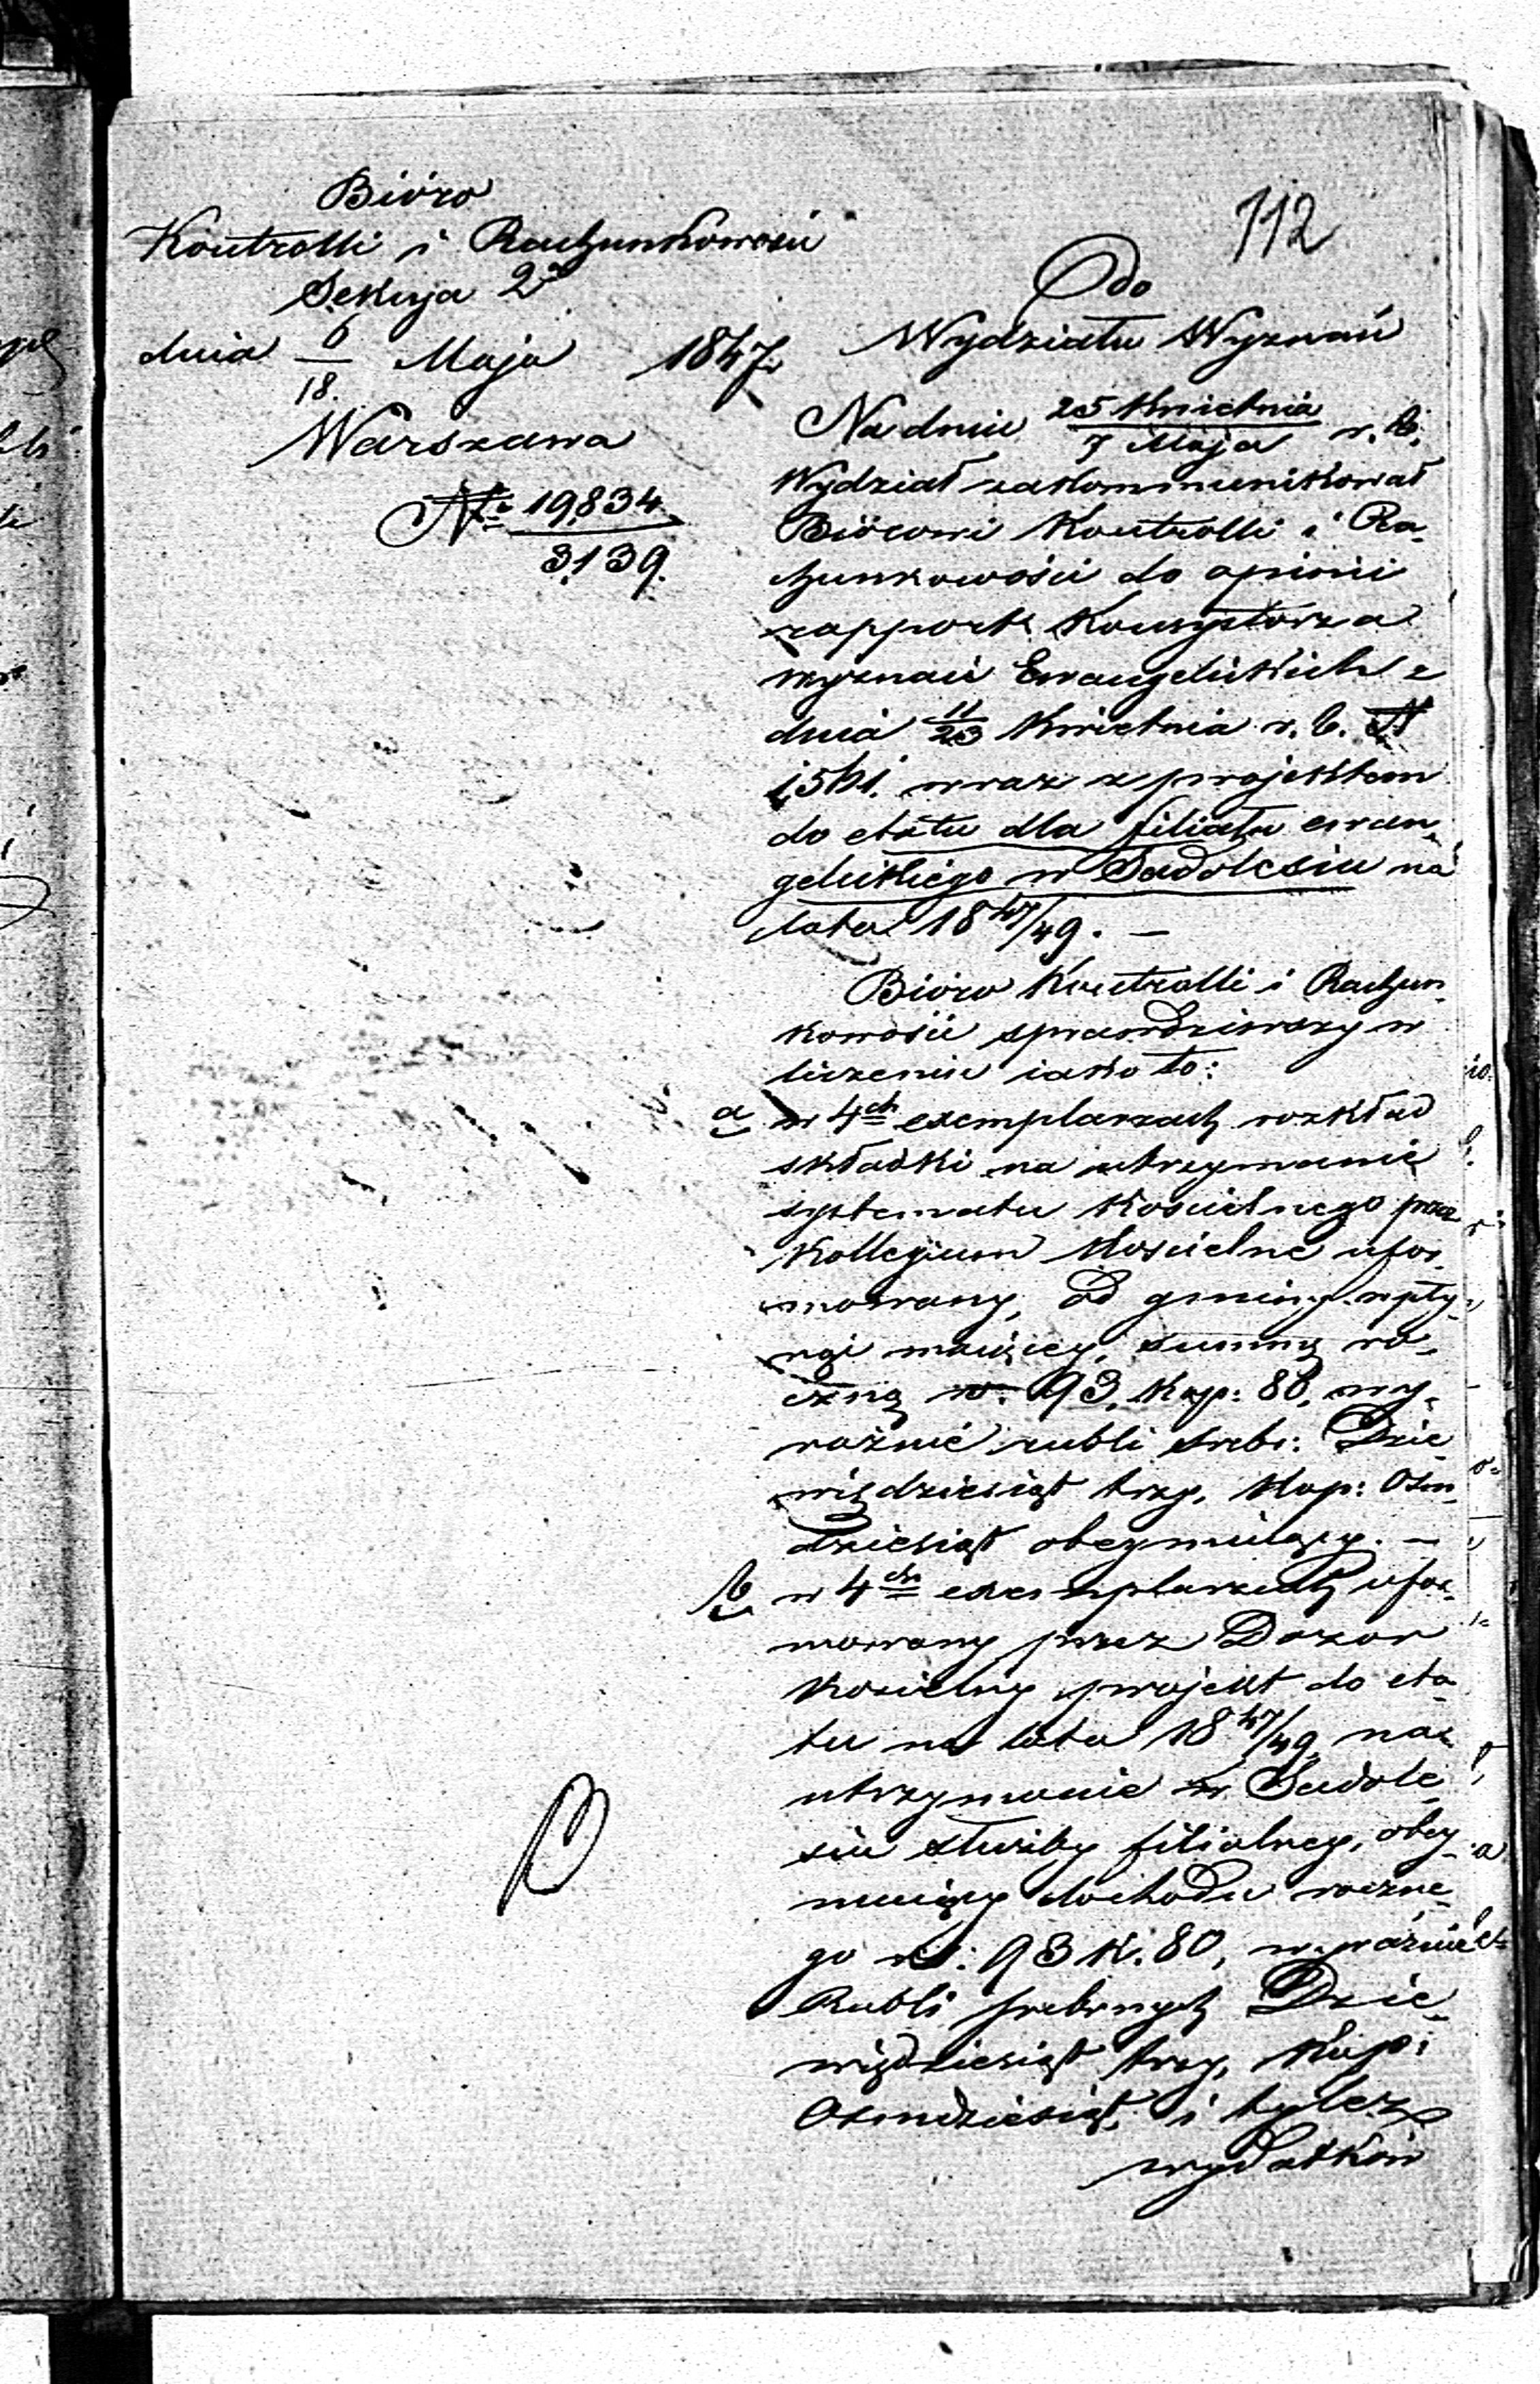 112
Bióro
Kontrolli i Rachunkowości
Sekcja 2ª
dnia 6/18 Maja 1847
Warszawa
No 19,834/3139.
Do
Wydziału Wyznań
Na dniu 25 Kwietnia/7 Maja r. b.
Wydział zakommunikował
Biórowi Kontrolli i Ra-
chunkowości do opinii
rapport Konsystorza
wyznań Ewangelickich z
dnia 11/23 Kwietnia r. b. N
1,561. wraz z projektem
do etatu dla filiału ewan-
gelickiego w Sadolesiu na
lata 1847/49. —
Bióro Kontrolli i Rachun-
kowości sprawdziwszy w
liczeniu iako to:
a w 4ch exemplarzach rozkład
składki na utrzymanie
systematu Kościelnego przez
Kollegium Kościelne ufor-
mowany, od gminy wpły-
nąć maiącey, summę ro-
czną rs. 93, kop: 80, wy-
raźnie rubli srebr: Dzie-
więdziesiąt trzy, kop: Ośm-
dziesiąt obeymuiący. —
b w 4ch exemplarzach ufor-
mowany przez Dozór
Kościelny projekt do eta-
tu na lata 1847/49 na
utrzymanie w Sadole-
siu służby filialney, obey-
muiący dochodu roczne-
go rs: 93 k. 80, wyraźnie
Rubli srebrnych Dzie-
więdziesiąt trzy, Kop:
Ośmdziesiąt, i tyleż
wydatków